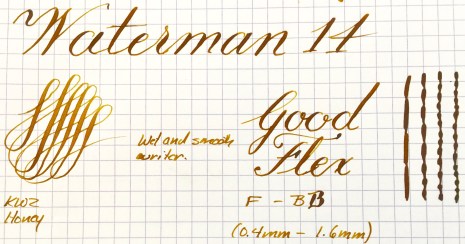 Waterman 14
Wet and smooth
writer.
KWZ
Honey
Good
Flex
F - BB
(0.4mm - 1.6mm)